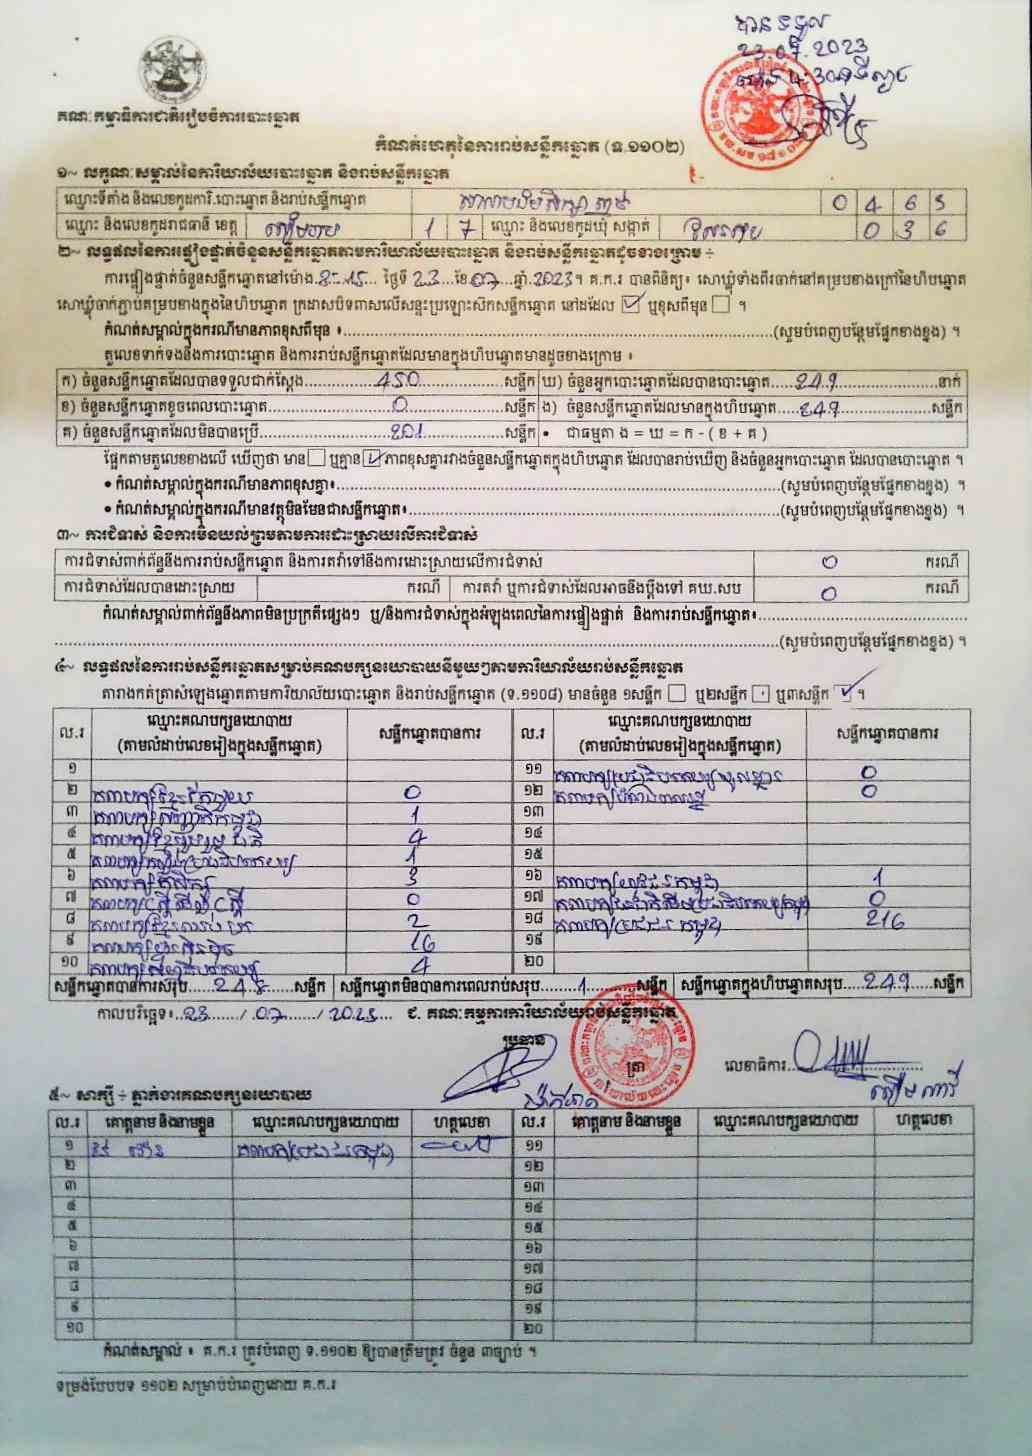 បានទទួល
23.07.2023
គណៈកម្មាធិការជាតិរៀបចំការបោះឆ្នោត
កំណត់ហេតុនៃការរាប់សន្លឹកឆ្នោត (ទ.១១០២)
១~ លក្ខណៈសម្គាល់នៃការិយាល័យបោះឆ្នោត និងរាប់សន្លឹកឆ្នោត
ឈ្មោះទីតាំង និងលេខកូដការិ.បោះឆ្នោត និងរាប់សន្លឹកឆ្នោត 0 4 6 5
ឈ្មោះ និងលេខកូដរាជធានី ខេត្ត សៀមរាប 1 7 ឈ្មោះ និងលេខកូដឃុំ សង្កាត់ 0 3 6
២~ លទ្ធផលនៃការផ្ទៀងផ្ទាត់ចំនួនសន្លឹកឆ្នោតតាមការិយាល័យបោះឆ្នោត និងរាប់សន្លឹកឆ្នោតដូចខាងក្រោម ÷
ការផ្ទៀងផ្ទាត់ចំនួនសន្លឹកឆ្នោតនៅម៉ោង 8:15 ថ្ងៃទី 23 ខែ 07 ឆ្នាំ 2023។ គ.ក.រ បានពិនិត្យ៖ សោឃ្លុំទាំងពីរចាក់នៅគម្របខាងក្រៅនៃហិបឆ្នោត
សោឃ្លុំចាក់ភ្ជាប់គម្របខាងក្នុងនៃហិបឆ្នោត ក្រដាសបិទពាសលើសន្ទះប្រឡោះស៊កសន្លឹកឆ្នោត នៅដដែល ☑ ឬខុសពីមុន ☐ ។
កំណត់សម្គាល់ក្នុងករណីមានភាពខុសពីមុន ៖ (សូមបំពេញបន្ថែមផ្នែកខាងខ្នង) ។
តួលេខទាក់ទងនឹងការបោះឆ្នោត និងការរាប់សន្លឹកឆ្នោតដែលមានក្នុងហិបឆ្នោតមានដូចខាងក្រោម ៖
ក) ចំនួនសន្លឹកឆ្នោតដែលបានទទួលជាក់ស្តែង 450 សន្លឹក ឃ) ចំនួនអ្នកបោះឆ្នោតដែលបានបោះឆ្នោត 249 នាក់
ខ) ចំនួនសន្លឹកឆ្នោតខូចពេលបោះឆ្នោត 0 សន្លឹក ង) ចំនួនសន្លឹកឆ្នោតដែលមានក្នុងហិបឆ្នោត 249 សន្លឹក
គ) ចំនួនសន្លឹកឆ្នោតដែលមិនបានប្រើ 201 សន្លឹក • ជាធម្មតា ង = ឃ = ក - ( ខ + គ )
ផ្អែកតាមតួលេខខាងលើ ឃើញថា មាន ☐ ឬគ្មាន ☑ ភាពខុសគ្នារវាងចំនួនសន្លឹកឆ្នោតក្នុងហិបឆ្នោត ដែលបានរាប់ឃើញ និងចំនួនអ្នកបោះឆ្នោត ដែលបានបោះឆ្នោត ។
• កំណត់សម្គាល់ក្នុងករណីមានភាពខុសគ្នា៖ (សូមបំពេញបន្ថែមផ្នែកខាងខ្នង) ។
• កំណត់សម្គាល់ក្នុងករណីមានវត្ថុមិនមែនជាសន្លឹកឆ្នោត៖ (សូមបំពេញបន្ថែមផ្នែកខាងខ្នង) ។
៣~ ការជំទាស់ និងការមិនយល់ព្រមតាមការដោះស្រាយលើការជំទាស់
ការជំទាស់ពាក់ព័ន្ធនឹងការរាប់សន្លឹកឆ្នោត និងការតវ៉ាទៅនឹងការដោះស្រាយលើការជំទាស់ 0 ករណី
ការជំទាស់ដែលបានដោះស្រាយ ករណី ការតវ៉ា ឬការជំទាស់ដែលអាចនឹងប្តឹងទៅ គឃ.សប 0 ករណី
កំណត់សម្គាល់ពាក់ព័ន្ធនឹងភាពមិនប្រក្រតីផ្សេងៗ ឬ/និងការជំទាស់ក្នុងអំឡុងពេលនៃការផ្ទៀងផ្ទាត់ និងការរាប់សន្លឹកឆ្នោត៖
(សូមបំពេញបន្ថែមផ្នែកខាងខ្នង) ។
៤~ លទ្ធផលនៃការរាប់សន្លឹកឆ្នោតសម្រាប់គណបក្សនយោបាយនីមួយៗតាមការិយាល័យរាប់សន្លឹកឆ្នោត
តារាងកត់ត្រាសំឡេងឆ្នោតតាមការិយាល័យបោះឆ្នោត និងរាប់សន្លឹកឆ្នោត (ទ.១១០៨) មានចំនួន ១សន្លឹក ☐ ឬ២សន្លឹក ☐ ឬ៣សន្លឹក ☑ ។
ល.រ ឈ្មោះគណបក្សនយោបាយ (តាមលំដាប់លេខរៀងក្នុងសន្លឹកឆ្នោត) សន្លឹកឆ្នោតបានការ ល.រ ឈ្មោះគណបក្សនយោបាយ (តាមលំដាប់លេខរៀងក្នុងសន្លឹកឆ្នោត) សន្លឹកឆ្នោតបានការ
១ ១១ 0
២ គណបក្សខ្មែរតែមួយ 0 ១២ 0
៣ 1 ១៣
៤ គណបក្សខ្មែររួបរួមជាតិ 4 ១៤
៥ 1 ១៥
៦ គណបក្សកសិករ 3 ១៦ គណបក្សយុវជនកម្ពុជា 1
៧ គណបក្សស្ត្រីដើម្បីស្ត្រី 0 ១៧ 0
៨ 2 ១៨ គណបក្សប្រជាជនកម្ពុជា 216
៩ គណបក្សហ៊្វុនស៊ិនប៉ិច 16 ១៩
១០ 4 ២០
សន្លឹកឆ្នោតបានការសរុប 248 សន្លឹក សន្លឹកឆ្នោតមិនបានការពេលរាប់សរុប 1 សន្លឹក សន្លឹកឆ្នោតក្នុងហិបឆ្នោតសរុប 249 សន្លឹក
កាលបរិច្ឆេទ៖ 23 / 07 / 2023 ជ. គណៈកម្មការការិយាល័យរាប់សន្លឹកឆ្នោត
ប្រធាន
ត្រា
លេខាធិការ
៥~ សាក្សី ÷ ភ្នាក់ងារគណបក្សនយោបាយ
ល.រ គោត្តនាម និងនាមខ្លួន ឈ្មោះគណបក្សនយោបាយ ហត្ថលេខា ល.រ គោត្តនាម និងនាមខ្លួន ឈ្មោះគណបក្សនយោបាយ ហត្ថលេខា
១ គណបក្សប្រជាជនកម្ពុជា ១១
២ ១២
៣ ១៣
៤ ១៤
៥ ១៥
៦ ១៦
៧ ១៧
៨ ១៨
៩ ១៩
១០ ២០
កំណត់សម្គាល់ ៖ គ.ក.រ ត្រូវបំពេញ ទ.១១០២ ឱ្យបានត្រឹមត្រូវ ចំនួន ៣ច្បាប់ ។
ទម្រង់បែបបទ ១១០២ សម្រាប់បំពេញដោយ គ.ក.រ